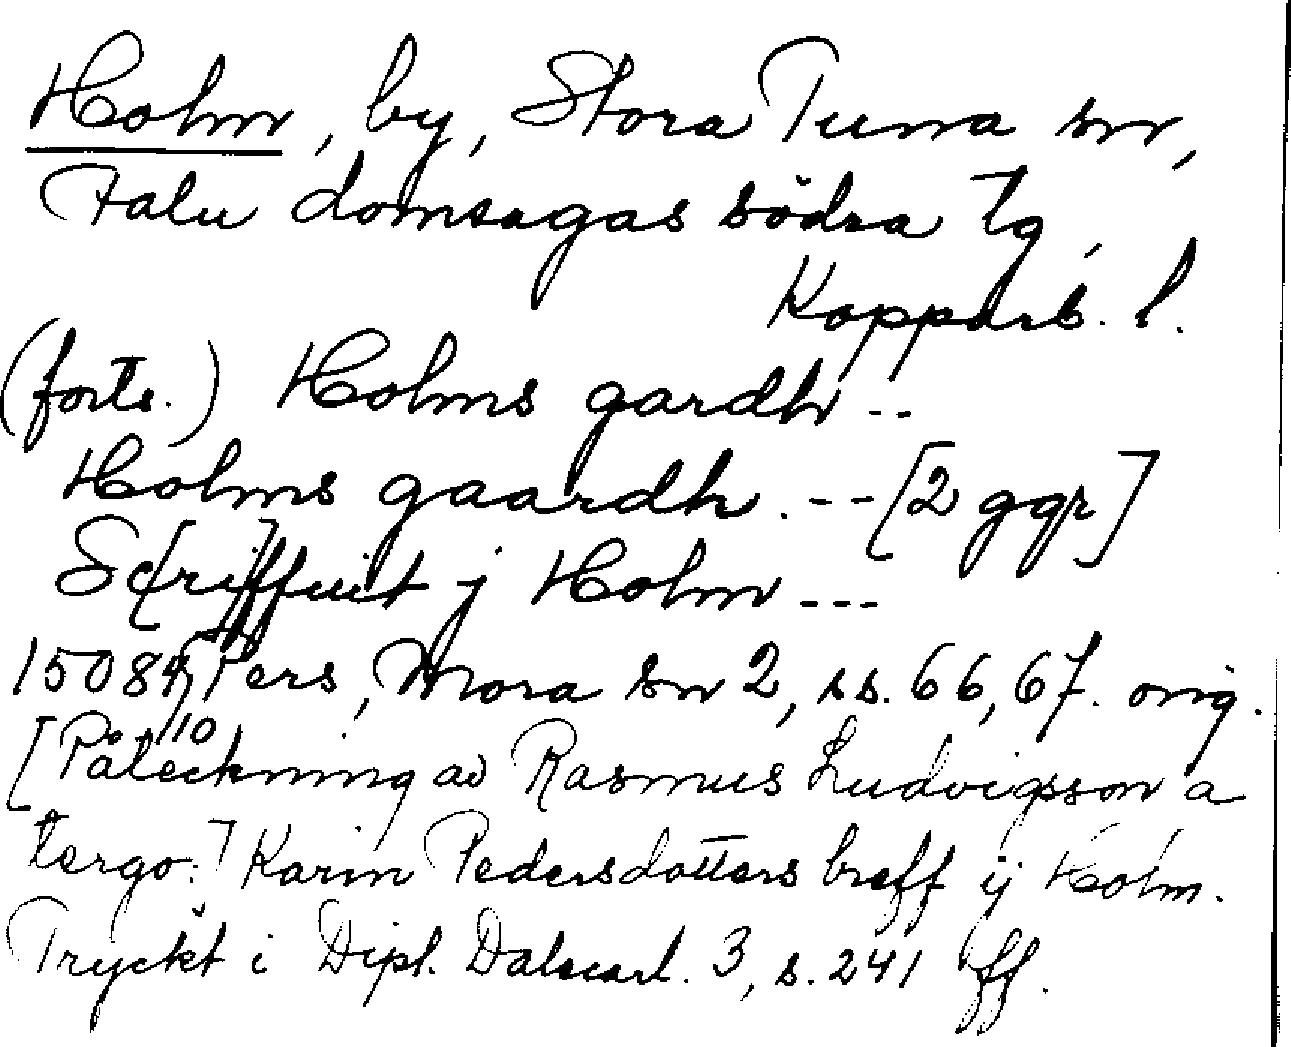 Holm, by, Stora Tuna sn,
Falu domsagas södra tg,
Kopparb. l.
(forts.) Holms gardh --
Holms gaardh. -- [2 ggr]
Sc[ri]ffuit j Holm ---
1508 Pers, Mora sn 2, ss. 66, 67. orig.
10
[Påteckning av Rasmus Ludvigsson a
tergo:] Karin Pedersdotters breff ij Holm.
Tryckt i Dipl. Dalecarl. 3, s. 241 ff.